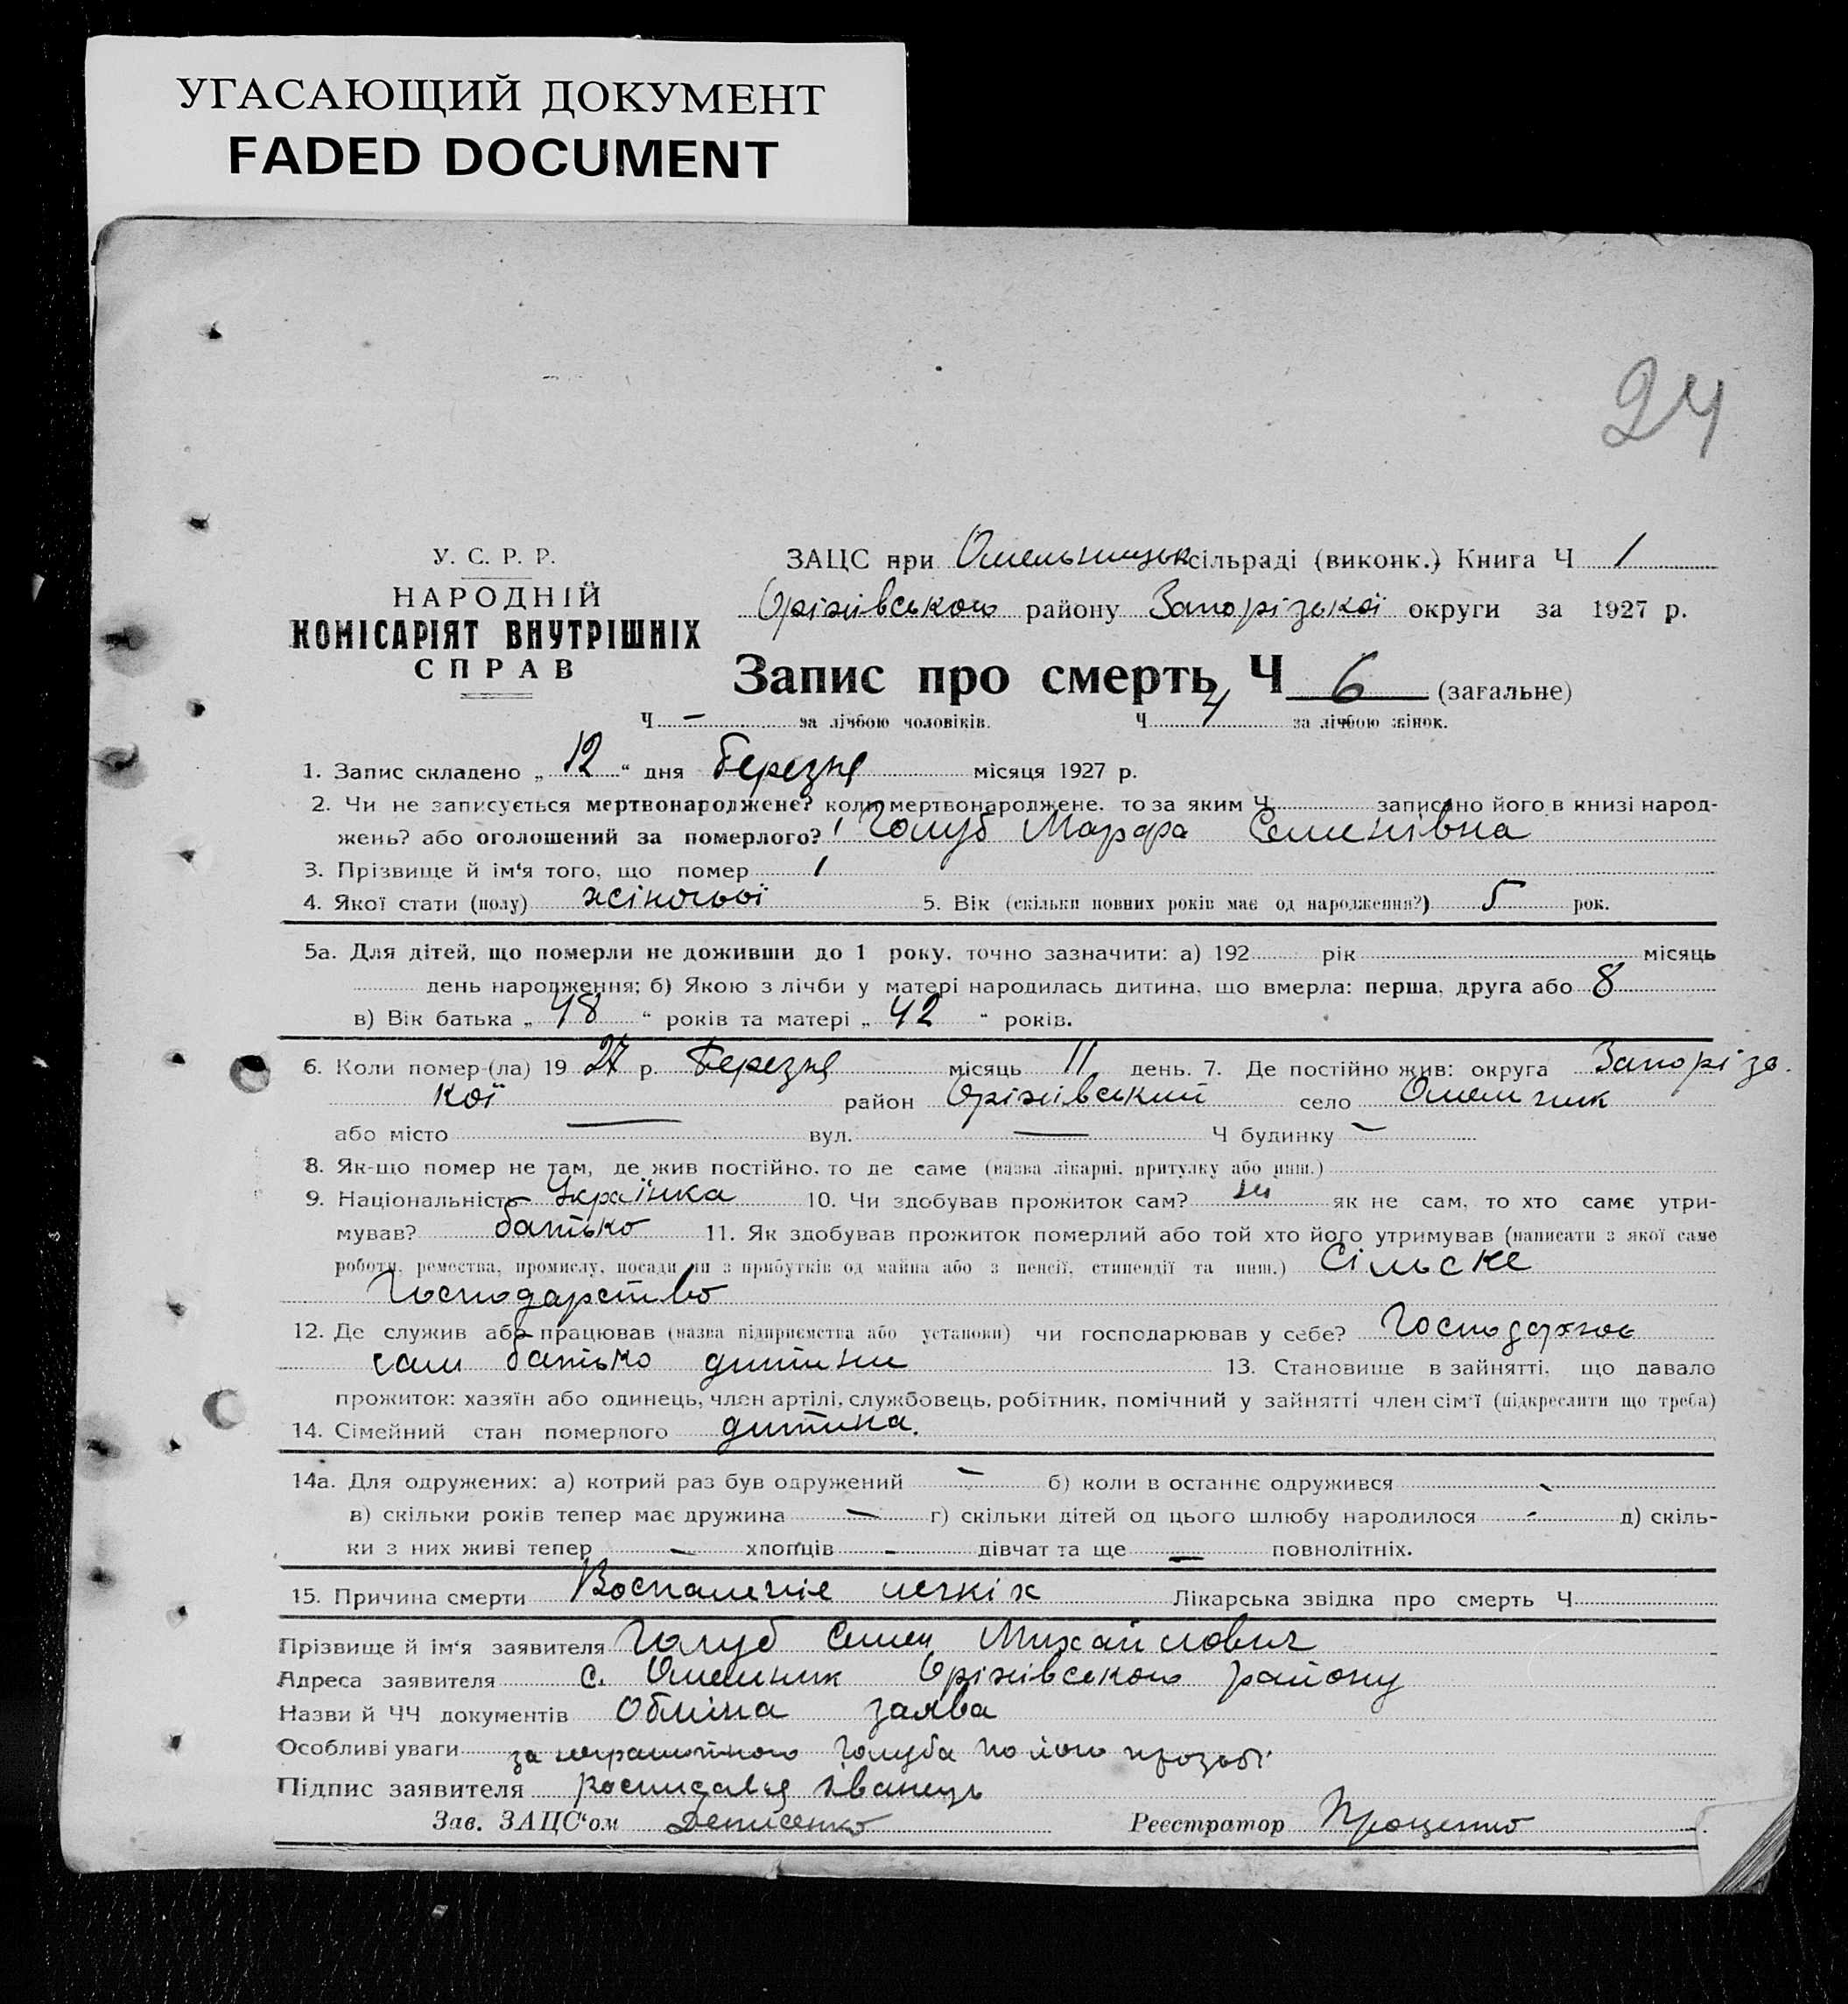 УГАСАЮЩИЙ ДОКУМЕНТ
FADED DOCUMENT
24
У. С. Р. Р.
НАРОДНІЙ
КОМІСАРІЯТ ВНУТРІШНІХ
СПРАВ
ЗАЦС при Омельницьк сільраді (виконк.) Книга Ч 1
Оріхівського району Запорізької округи за 1927 р.
Запис про смерть Ч 6 (загальне)
Ч — за лічбою чоловіків. Ч 4 за лічбою жінок.
1. Запис складено „ 12 “ дня Березня місяця 1927 р.
2. Чи не записується мертвонароджене? коли мертвонароджене, то за яким Ч записано його в книзі народ-
жень? або оголошений за померлого? Голуб Марфа Семенівна
3. Прізвище й ім‘я того, що помер
4. Якої стати (полу) жіночої 5. Вік (скільки повних років має од народження?) 5 рок.
5а. Для дітей, що померли не доживши до 1 року, точно зазначити: а) 192 рік місяць
день народження; б) Якою з лічби у матері народилась дитина, що вмерла: перша, друга або 8
в) Вік батька „ 48 “ років та матері „ 42 “ років.
6. Коли помер-(ла) 19 27 р. Березня місяць 11 день. 7. Де постійно жив: округа Запорізь-
кої район Оріхівський село Омельник
або місто — вул. — Ч будинку —
8. Як-що помер не там, де жив постійно, то де саме (назва лікарні, притулку або инш.)
9. Національність Українка 10. Чи здобував прожиток сам? ні як не сам, то хто саме утри-
мував? батько 11. Як здобував прожиток померлий або той хто його утримував (написати з якої саме
роботи, ремества, промислу, посади чи з прибутків од майна або з пенсії, стипендії та инш.) Сільске
Господарство
12. Де служив або працював (назва підприємства або установи) чи господарював у себе? Господарює
сам батько дитини 13. Становище в зайнятті, що давало
прожиток: хазяїн або одинець, член артілі, службовець, робітник, помічний у зайнятті член сім‘ї (підкреслити що треба)
14. Сімейний стан померлого дитина.
14а. Для одружених: а) котрий раз був одружений — б) коли в останнє одружився -
в) скільки років тепер має дружина — г) скільки дітей од цього шлюбу народилося - д) скіль-
ки з них живі тепер — хлопців - дівчат та ще — повнолітніх.
15. Причина смерти Воспаленіе легкіх Лікарська звідка про смерть Ч
Прізвище й ім‘я заявителя Голуб Семен Михайлович
Адреса заявителя с. Омельник Оріхівського району
Назви й ЧЧ документів заява
Особливі уваги за неграмотного Голуба по його прозьбі
Підпис заявителя росписався Іванець
Зав. ЗАЦС‘ом Денисенко Реєстратор Проценко